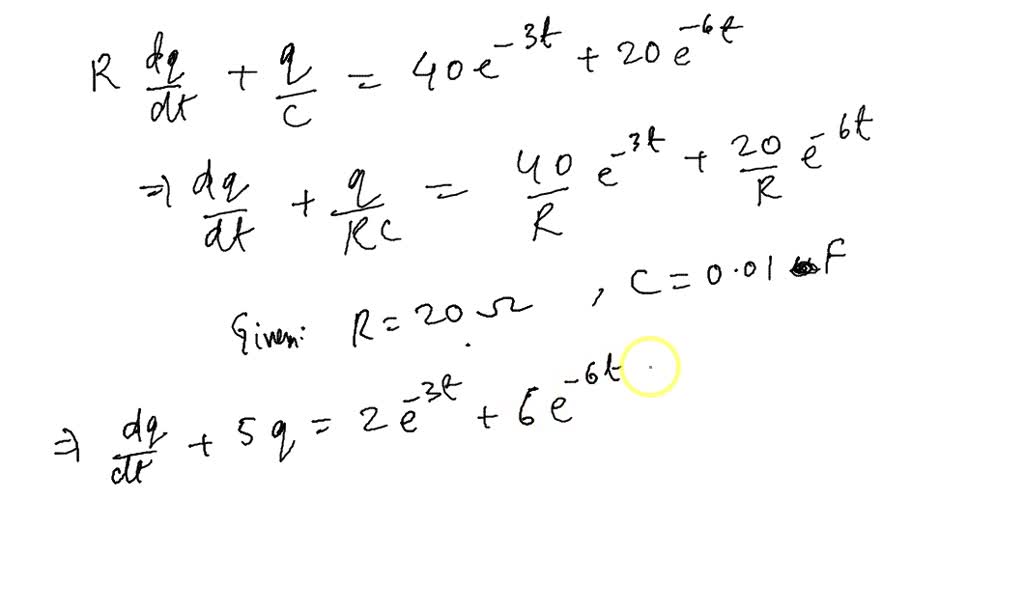 R dq/dt + q/C = 40e^-3t + 20e^-6t
=> dq/dt + q/RC = 40/R e^-3t + 20/R e^-6t
Given: R = 20 Ω , C = 0.01 F
=> dq/dt + 5q = 2e^-3t + 6e^-6t